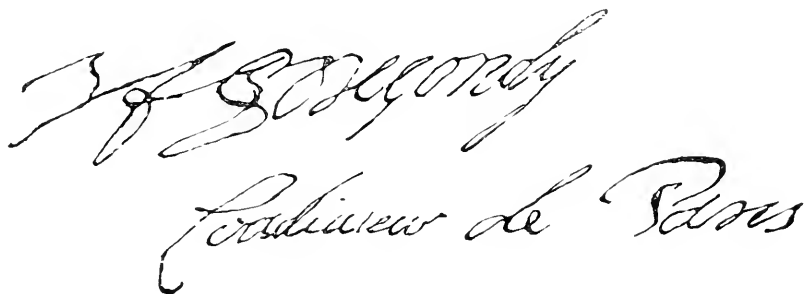 de gondy
Coadiuteur de Paris